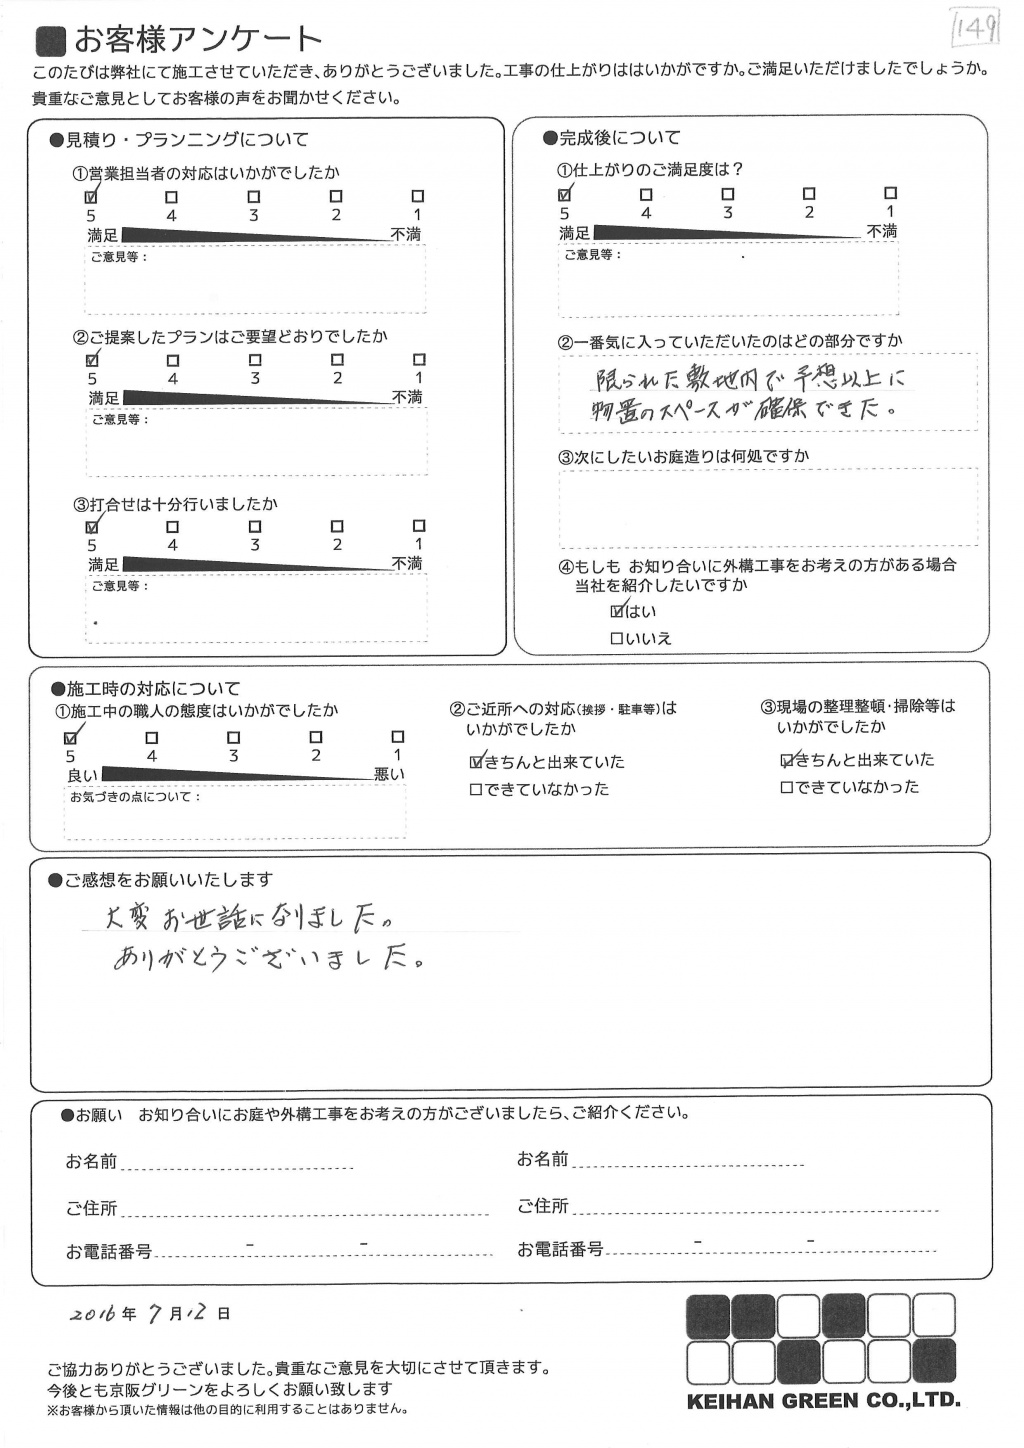 149
お客様アンケート
このたびは弊社にて施工させていただき、ありがとうございました。工事の仕上がりははいかがですか。ご満足いただけましたでしょうか。
貴重なご意見としてお客様の声をお聞かせください。
●見積り・プランニングについて
①営業担当者の対応はいかがでしたか
☑ □ □ □ □
5 4 3 2 1
満足 不満
ご意見等：
②ご提案したプランはご要望どおりでしたか
☑ □ □ □ □
5 4 3 2 1
満足 不満
ご意見等：
③打合せは十分行いましたか
☑ □ □ □ □
5 4 3 2 1
満足 不満
ご意見等：
●完成後について
①仕上がりのご満足度は？
☑ □ □ □ □
5 4 3 2 1
満足 不満
ご意見等：
②一番気に入っていただいたのはどの部分ですか
限られた敷地内で予想以上に
物置のスペースが確保できた。
③次にしたいお庭造りは何処ですか
④もしも お知り合いに外構工事をお考えの方がある場合
当社を紹介したいですか
☑はい
□いいえ
●施工時の対応について
①施工中の職人の態度はいかがでしたか
☑ □ □ □ □
5 4 3 2 1
良い 悪い
お気づきの点について：
②ご近所への対応(挨拶・駐車等)は
いかがでしたか
☑きちんと出来ていた
□できていなかった
③現場の整理整頓・掃除等は
いかがでしたか
☑きちんと出来ていた
□できていなかった
●ご感想をお願いいたします
大変お世話になりました。
ありがとうございました。
●お願い お知り合いにお庭や外構工事をお考えの方がございましたら、ご紹介ください。
お名前
ご住所
お電話番号 - -
お名前
ご住所
お電話番号 - -
2016年7月12日
ご協力ありがとうございました。貴重なご意見を大切にさせて頂きます。
今後とも京阪グリーンをよろしくお願い致します
※お客様から頂いた情報は他の目的に利用することはありません。
KEIHAN GREEN CO.,LTD.